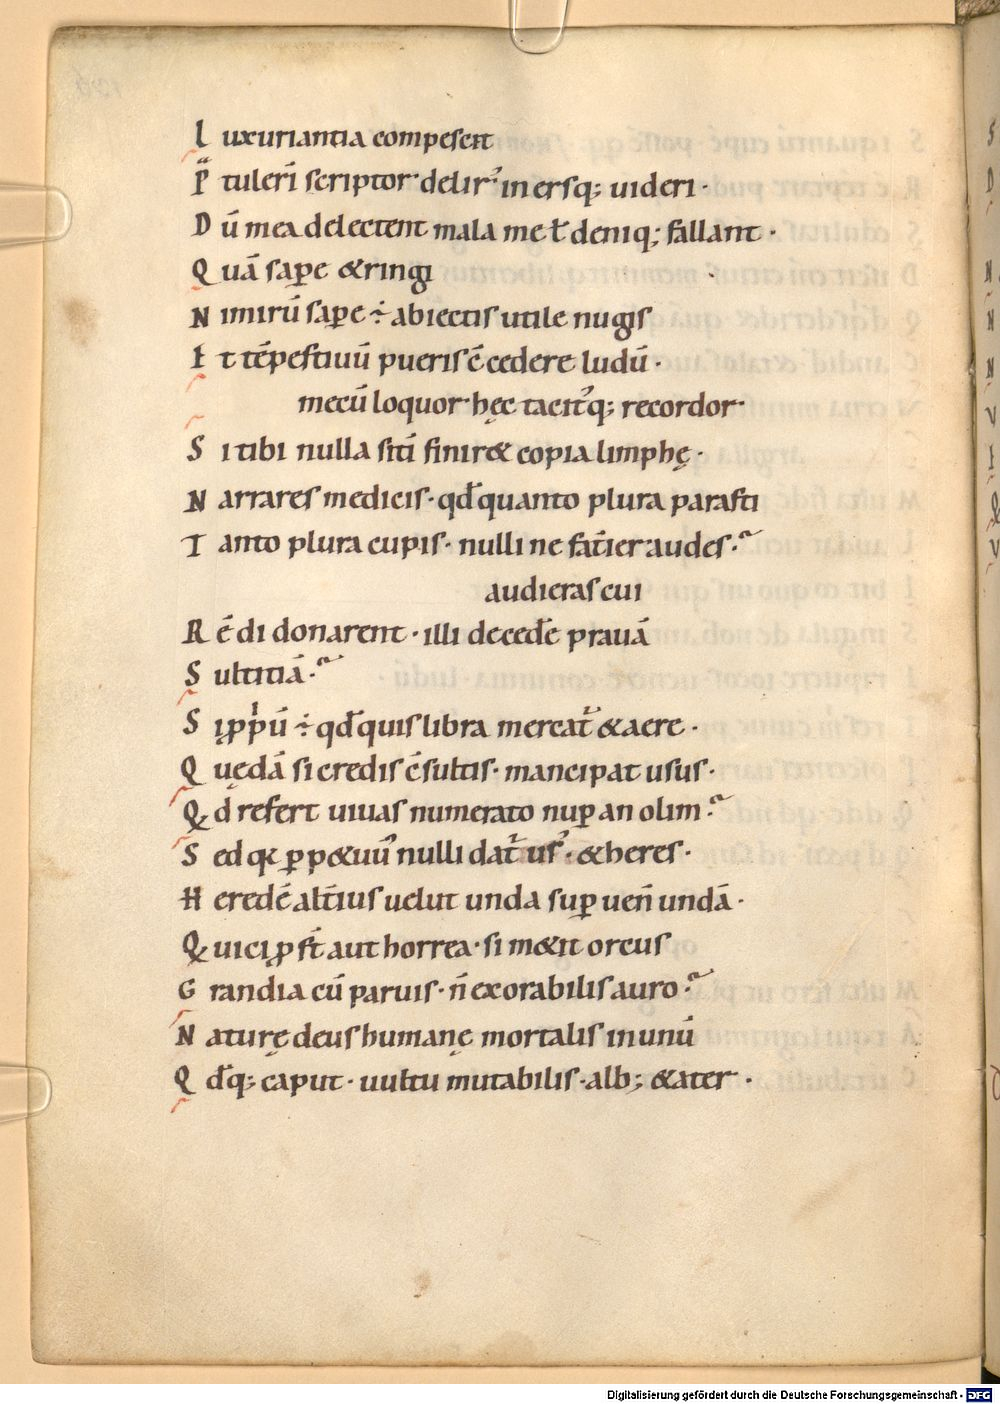 L uxuriantia compescet
P tulerī scriptor· delir᷒ inersq; uideri·
D ū mea delectent mala me ł deniq; fallant·
Q uā sape &ringi
N imirū sape ÷ abiectis utile nugis
E t tēpestiuū pueris ē cedere ludū·
mecū loquor· hęc tacit᷒q; recordor·
S i tibi nulla sitī finir& copia limphę·
N arrares medicis· qđ quanto plura parasti
T anto plura cupis· nulli ne fat̄ier audes·
audieras cui
R ē di donarent· illi deced̄e prauā
S ultitiā·
S i ꝓpriū ÷ qđ quis libra mercat᷑ & aere·
Q uędā si credis ēsultis· mancipat usus·
Q d refert uiuas numerato nuꝑ an olim·
S ed qꝛ ꝑp&uū nulli dat᷑ us᷒· & heres·
H eredē alt̄ius uelut unda suꝑuen̄ undā·
Q uici ꝓst̄ aut horrea· si m&it orcus
G randia cū paruis· n̄ exorabilis auro·
N aturę deus humanę mortalis in unū
Q đq; caput· uultu mutabilis· alb; & ater·
Digitalisierung gefördert durch die Deutsche Forschungsgemeinschaft - DFG